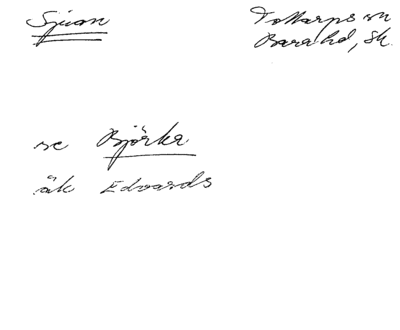 Sjuan
Tottarps sn
Bara hd, Sk.
se Björka
äk Edvards